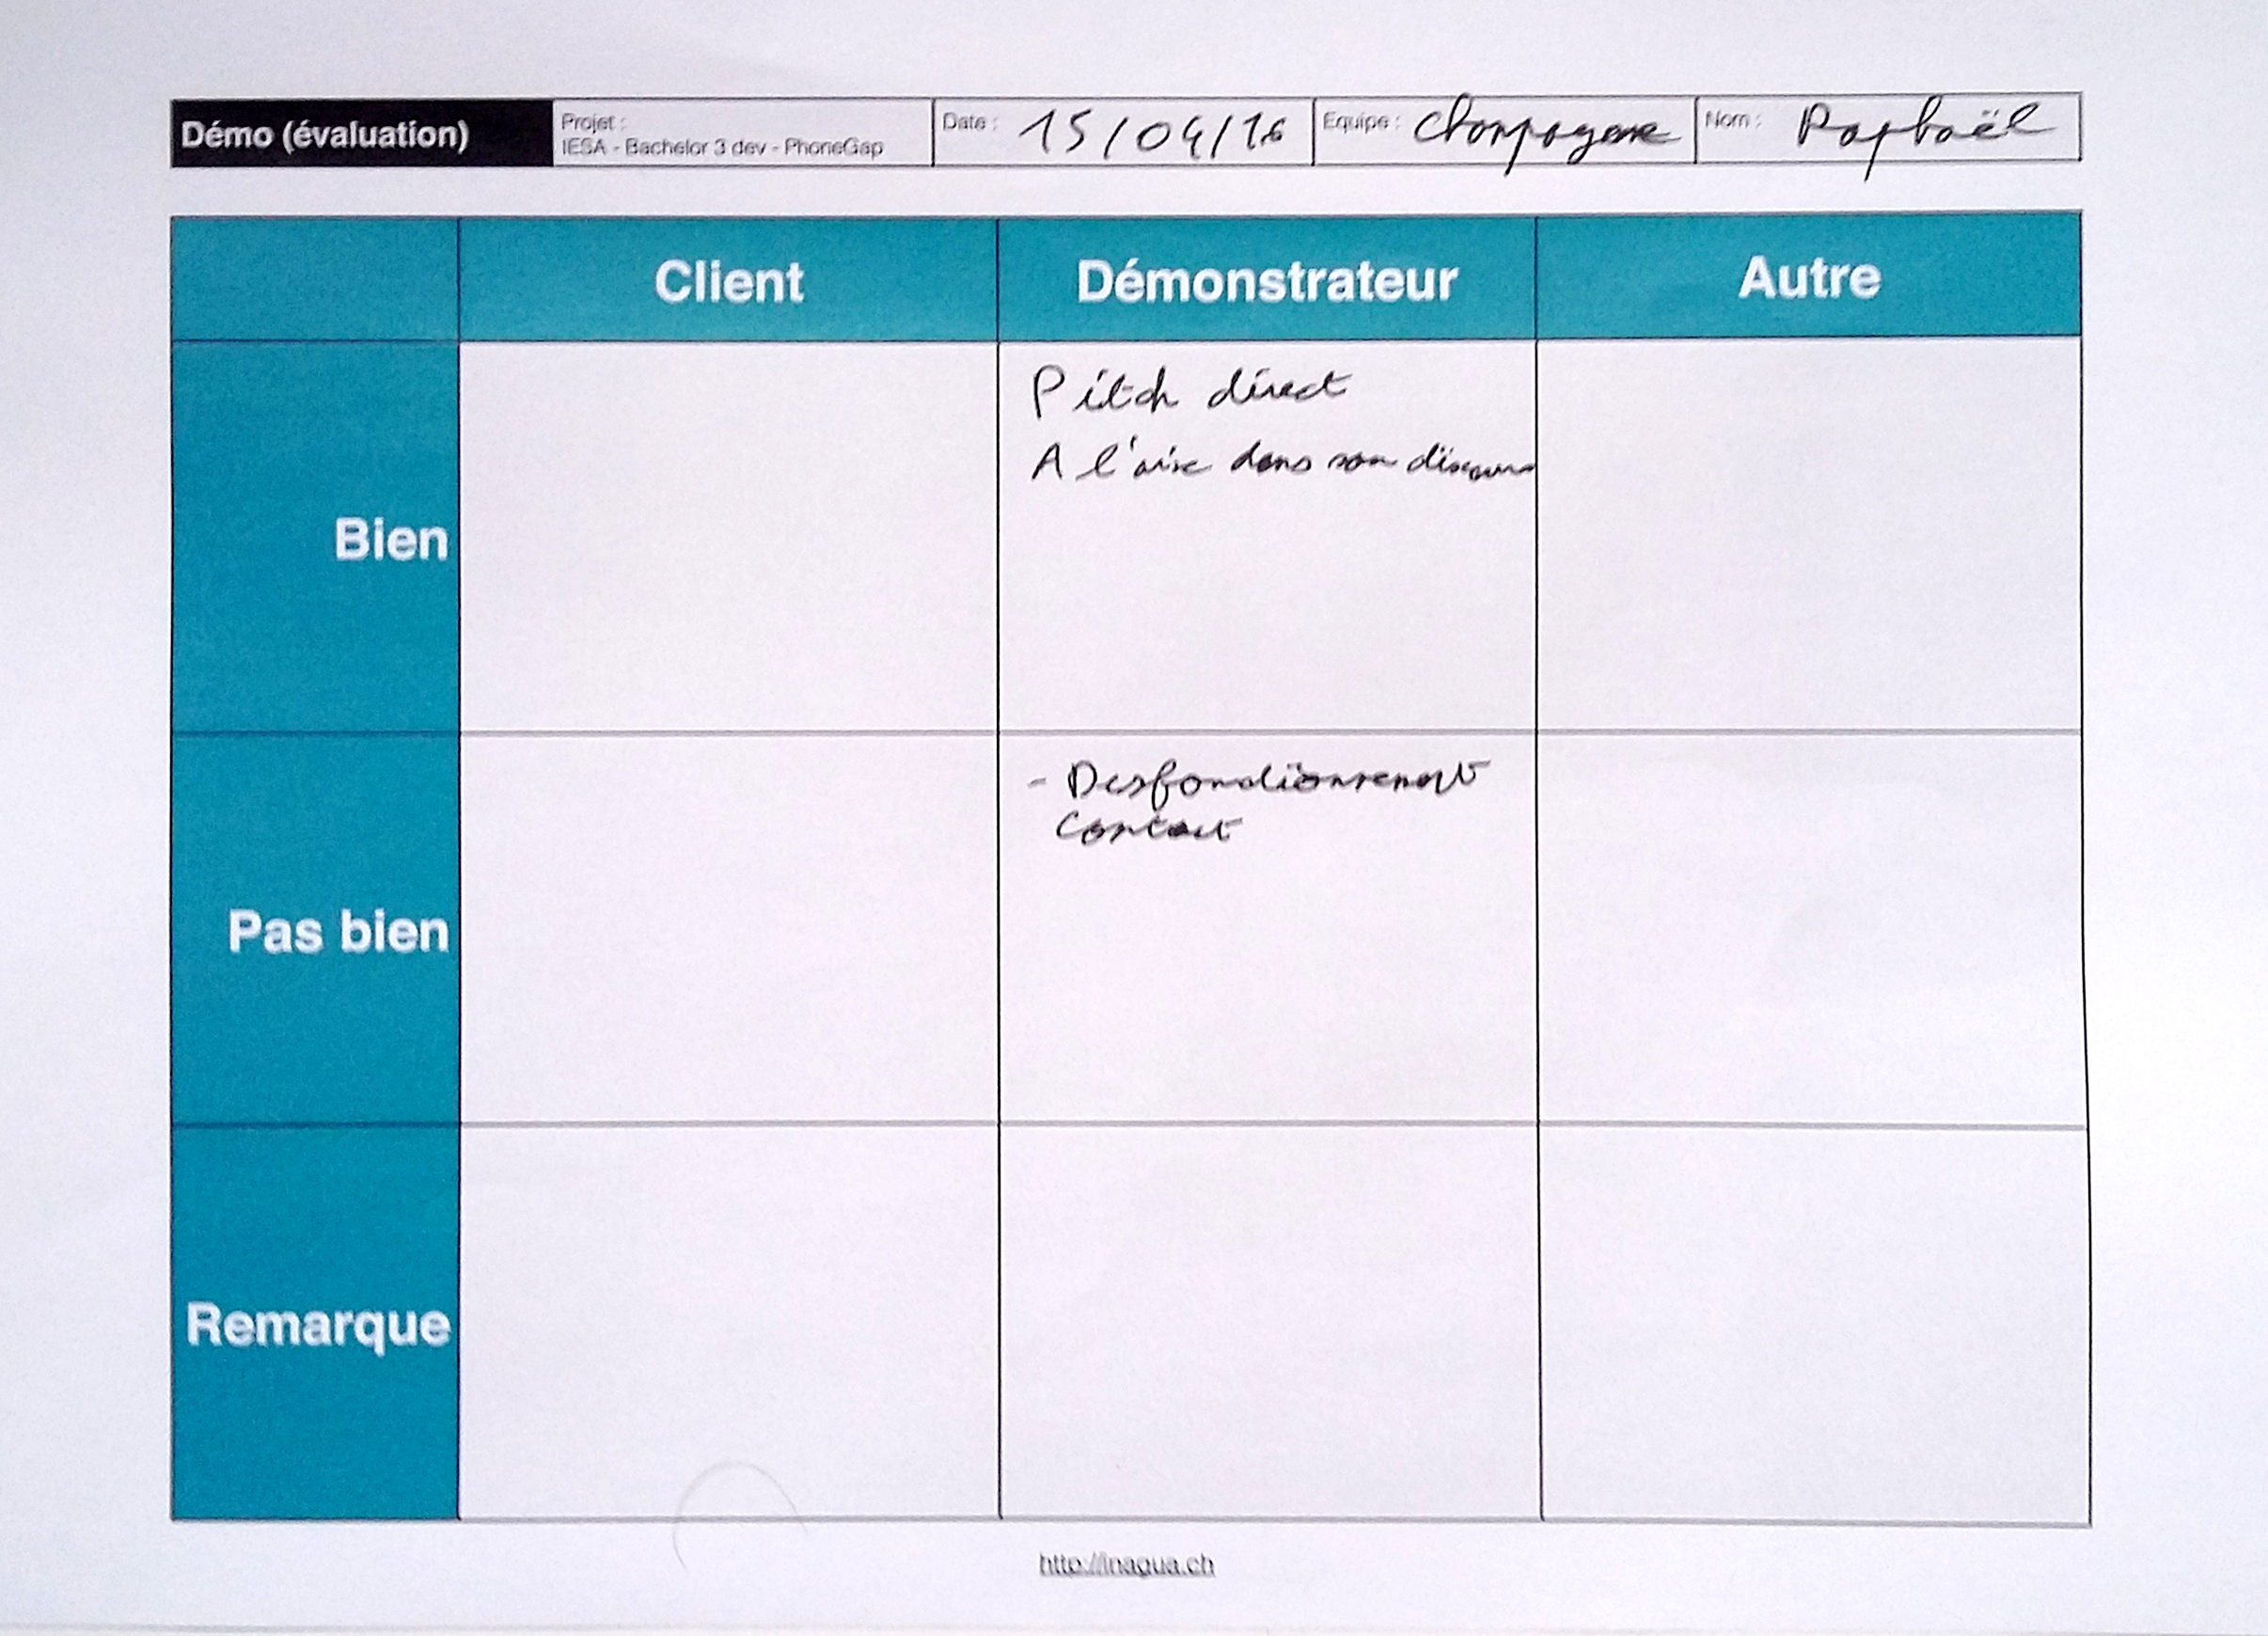 Démo (évaluation)
Projet :
IESA - Bachelor 3 dev - PhoneGap
Date : 15/04/16
Equipe : Champagne
Nom : Raphaël
Client
Démonstrateur
Autre
Bien
Pitch direct
A l'aise dans son discours
Pas bien
- Desfonctionnement
Contact
Remarque
http://inaqua.ch